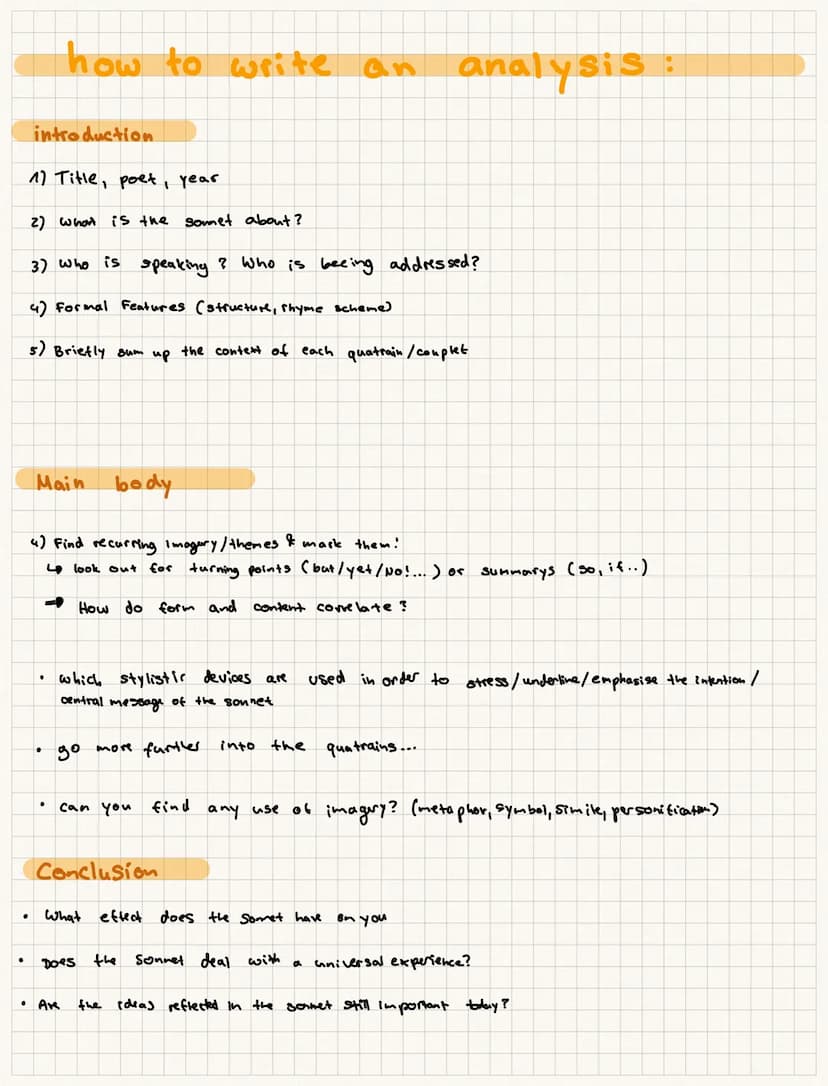 how to write an analysis:
introduction
1) Title, poet, year
2) what is the sonnet about?
3) who is speaking? Who is beeing addressed?
4) Formal Features (structure, rhyme scheme)
5) Briefly sum up the context of each quatrain/couplet
Main body
4) Find recurring imagery/themes & mark them!
↳ look out for turning points (but/yet/No!...) or summarys (so, if..)
→ How do form and content correlate?
• which stylistic devices are used in order to stress/underline/emphasise the intention/
central message of the sonnet
• go more further into the quatrains...
• can you find any use of imagery? (metaphor, symbol, simile, personification)
Conclusion
• What effect does the sonnet have on you
• Does the sonnet deal with a universal experience?
• Are the ideas reflected in the sonnet still important today?